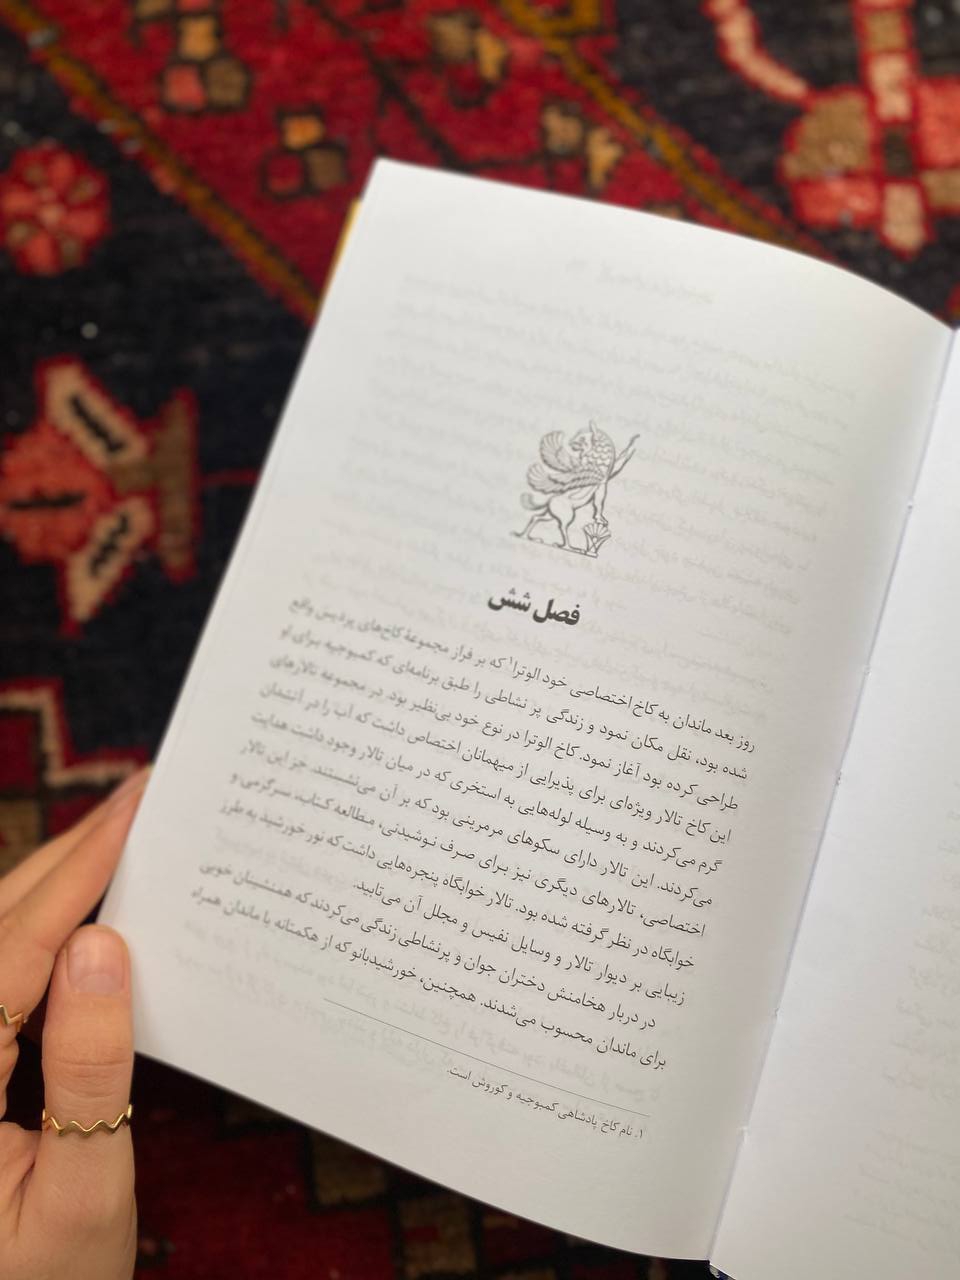 فصل شش
روز بعد ماندان به کاخ اختصاصی خود الوترا۱ که بر فراز مجموعهٔ کاخ‌های پردیس واقع
شده بود، نقل مکان نمود و زندگی پر نشاطی را طبق برنامه‌ای که کمبوجیه برای او
طراحی کرده بود آغاز نمود. کاخ الوترا در نوع خود بی‌نظیر بود. در مجموعه تالارهای
این کاخ تالار ویژه‌ای برای پذیرایی از میهمانان اختصاص داشت که آب را در آتشدان
گرم می‌کردند و به وسیله لوله‌هایی به استخری که در میان تالار وجود داشت هدایت
می‌کردند. این تالار دارای سکوهای مرمرینی بود که بر آن می‌نشستند. جز این تالار
اختصاصی، تالارهای دیگری نیز برای صرف نوشیدنی، مطالعه کتاب، سرگرمی و
خوابگاه در نظر گرفته شده بود. تالار خوابگاه پنجره‌هایی داشت که نور خورشید به طرز
زیبایی بر دیوار تالار و وسایل نفیس و مجلل آن می‌تابید.
در دربار هخامنش دختران جوان و پرنشاطی زندگی می‌کردند که همنشینان خوبی
برای ماندان محسوب می‌شدند. همچنین، خورشیدبانو که از هکمتانه با ماندان همراه
۱. نام کاخ پادشاهی کمبوجیه و کوروش است.